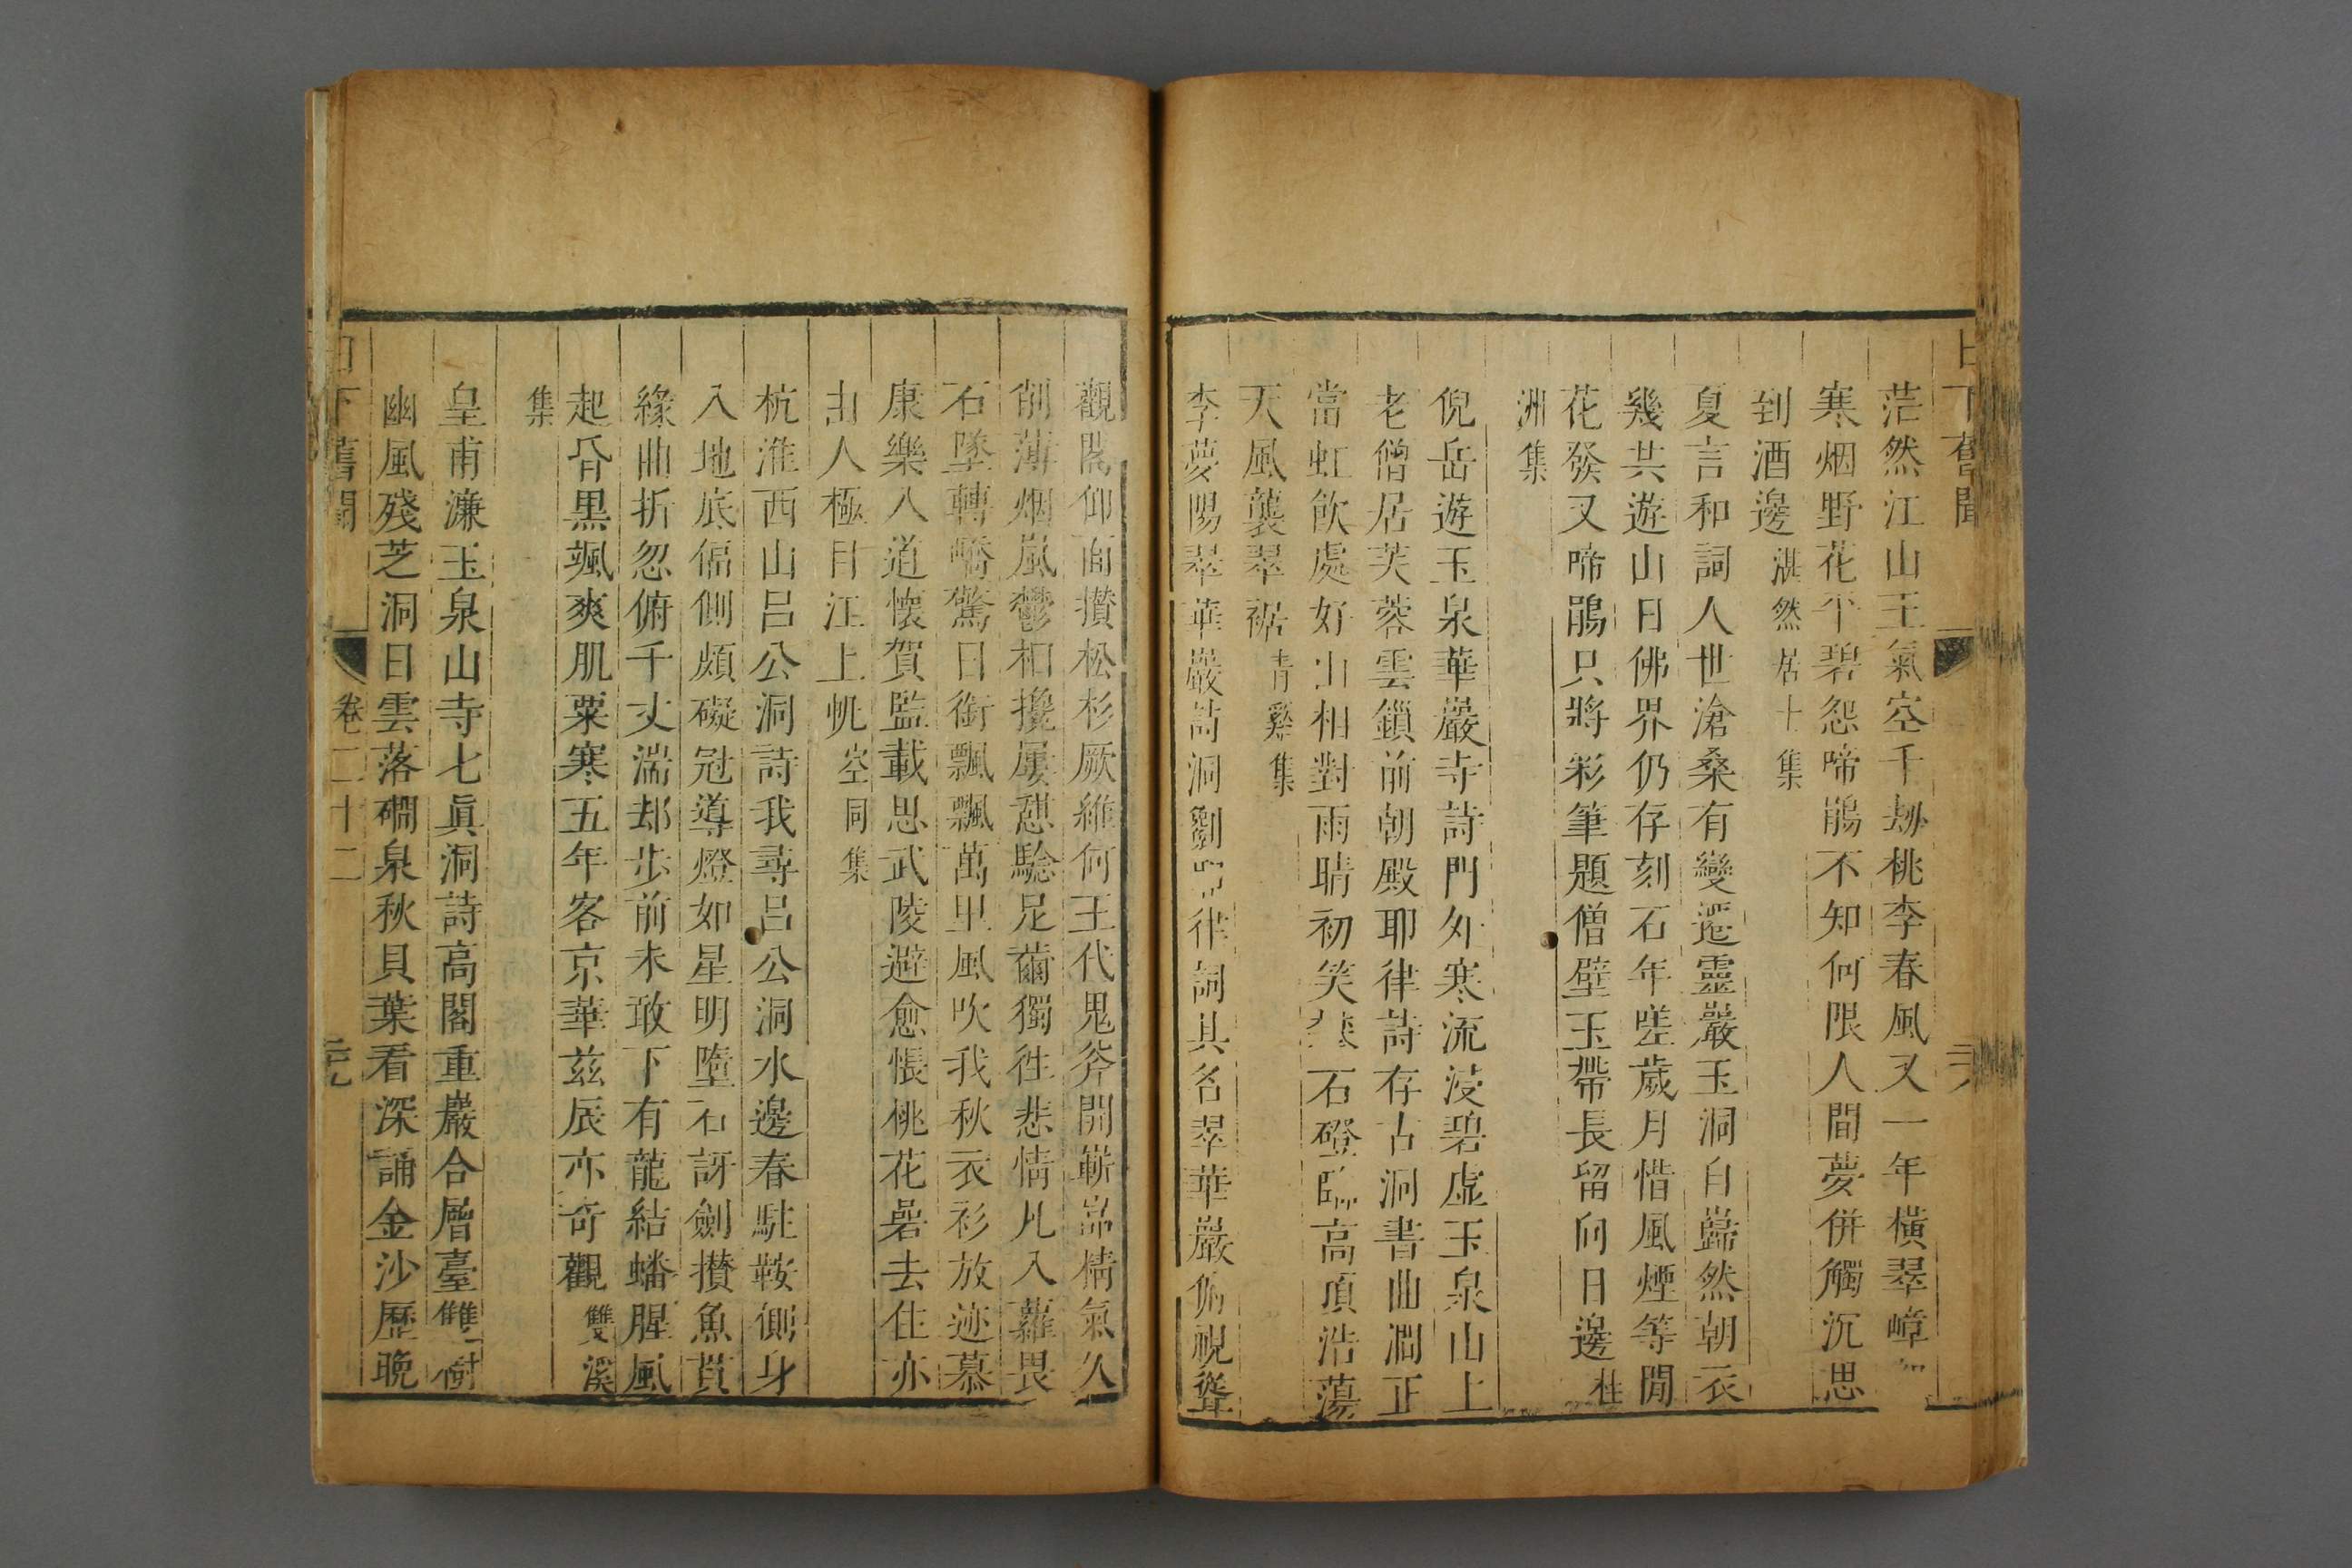 日下舊聞
茫然江山王氣空千劫桃李春風又一年橫翠嶂
寒烟野花平碧怨啼鵑不知何限人間夢併觸沉思
到酒邊 湛然居士集
夏言和詞人世滄桑有變遷靈巖玉洞自巋然朝衣
幾共遊山日佛界仍存刻石年嗟歲月惜風煙等閒
花發又啼鵑只將彩筆題僧壁玉帶長留向日邊 桂
洲集
倪岳遊玉泉華嚴寺詩門外寒流浸碧虛玉泉山上
老僧居芙蓉雲鎖前朝殿耶律詩存古洞書曲澗正
當虹飲處好山相對雨晴初笑 石磴臨高頂浩蕩
天風襲翠裾 青谿集
李夢陽翠華巖詩洞劉 律詞其名翠華巖俯視聳
觀閣仰面攢松杉厥維何王代鬼斧開嶄嵓精氣久
削薄烟嵐鬱相攙屢憩騐足繭獨徃悲情凡入蘿畏
石墜轉嶠驚日銜飄飄萬里風吹我秋衣衫放迹慕
康樂入道懷賀監載思武陵避愈悵桃花碞去住亦
由人極目江上帆 空同集
杭淮西山呂公洞詩我尋呂公洞水邊春駐鞍側身
入地底偪側頗礙冠導燈如星明墮石訝劍攢魚貫
緣曲折忽俯千丈湍却步前未敢下有龍結蟠腥風
起昏黑颯爽肌粟寒五年客京華茲辰亦奇觀 雙溪
集
皇甫濂玉泉山寺七眞洞詩高閣重巖合層臺雙樹
幽風殘芝洞日雲落磵泉秋貝葉看深誦金沙歷晚
日下舊聞 卷二十二 三九